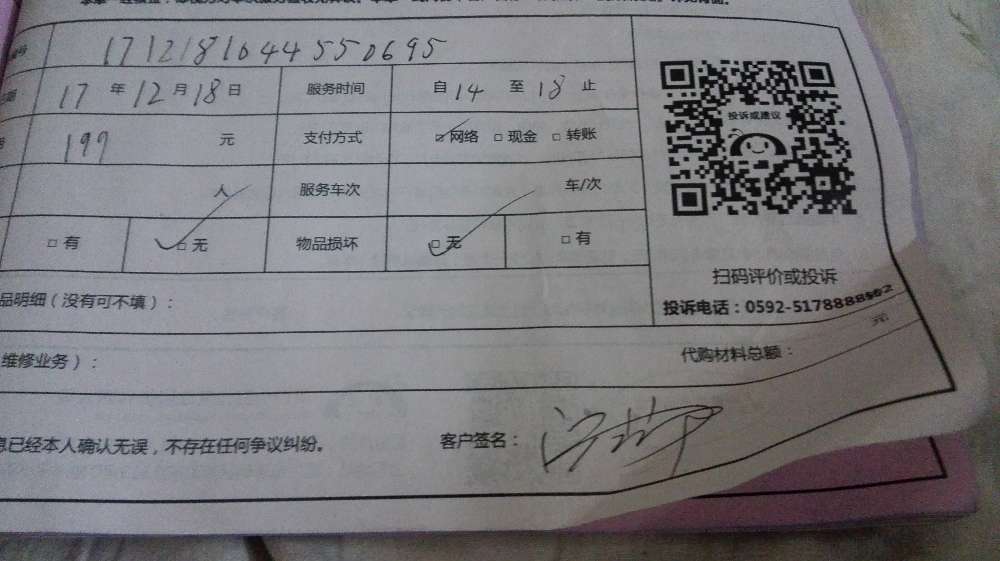 1712181044550695
17 年 12 月 18 日 服务时间 自 14 至 18 止
199 元 支付方式 网络 现金 转账
人 服务车次 车/次
有 无 物品损坏 无 有
投诉或建议
扫码评价或投诉
品明细(没有可不填):
投诉电话:0592-5178888
元
维修业务): 代购材料总额:
息已经本人确认无误,不存在任何争议纠纷。 客户签名: